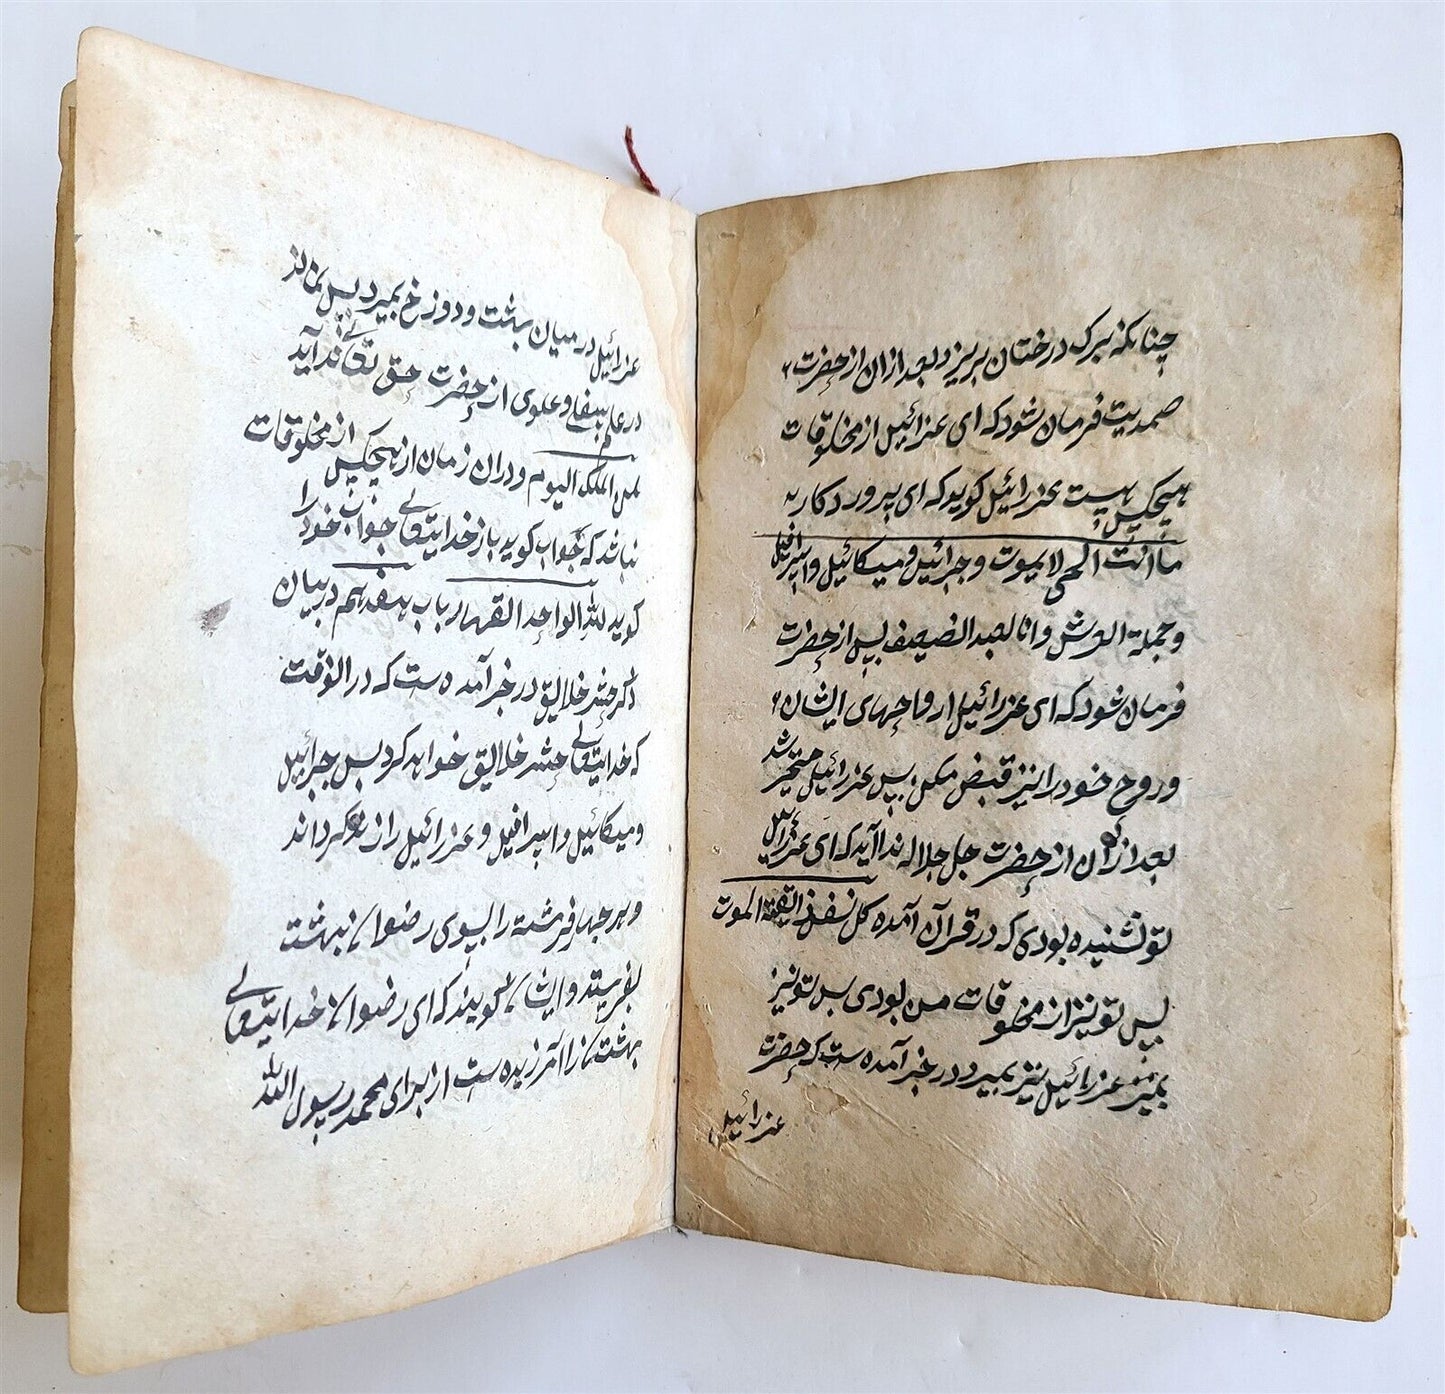 چنانکه برک درختان بریزد بعد ازان از حضرت
صمدیت فرمان شود که ای عزرائیل از مخلوقات
هیچکس هست عزرائیل کوید که ای پروردکار
ما انت الحی لا یموت و جبرائیل و میکائیل و اسرافیل
و حملة العرش و انا لعبد الضعیف پس از حضرت
فرمان شود که ای عزرائیل ارواحهای ایشان
و روح خود را نیز قبض مکن پس عزرائیل متحیر شد
بعد ازان از حضرت جل جلاله ندا آید که ای عزرائیل
تو نشنیده بودی که در قرآن آمده کل نفس ذائقة الموت
پس تو نیز از مخلوقات من بودی پس تو نیز
بمیر عزرائیل نیز بمیرد در خبر آمده ست که حضرت
عزرائیل
عزرائیل در میان بهشت و دوزخ بمیرد پس
در عالم سفلی و علوی از حضرت حق تعالی ندا آید
لمن الملک الیوم و دران زمان از هیچکس از مخلوقات
نباشد که جواب کوید باز خدایتعالی جواب خود را
کوید لله الواحد القهار باب هفدهم در بیان
ذکر حشر خلایق در خبر آمده ست که در الوقت
که خدایتعالی حشر خلایق خواهد کرد پس جبرائیل
و میکائیل و اسرافیل و عزرائیل را زنده کرداند
و هر چهار فرشته را بسوی رضوان بهشت
بفرستد و ایشان کویند که ای رضوان خدایتعالی
بهشت را آمرزیده ست از برای محمد رسول الله